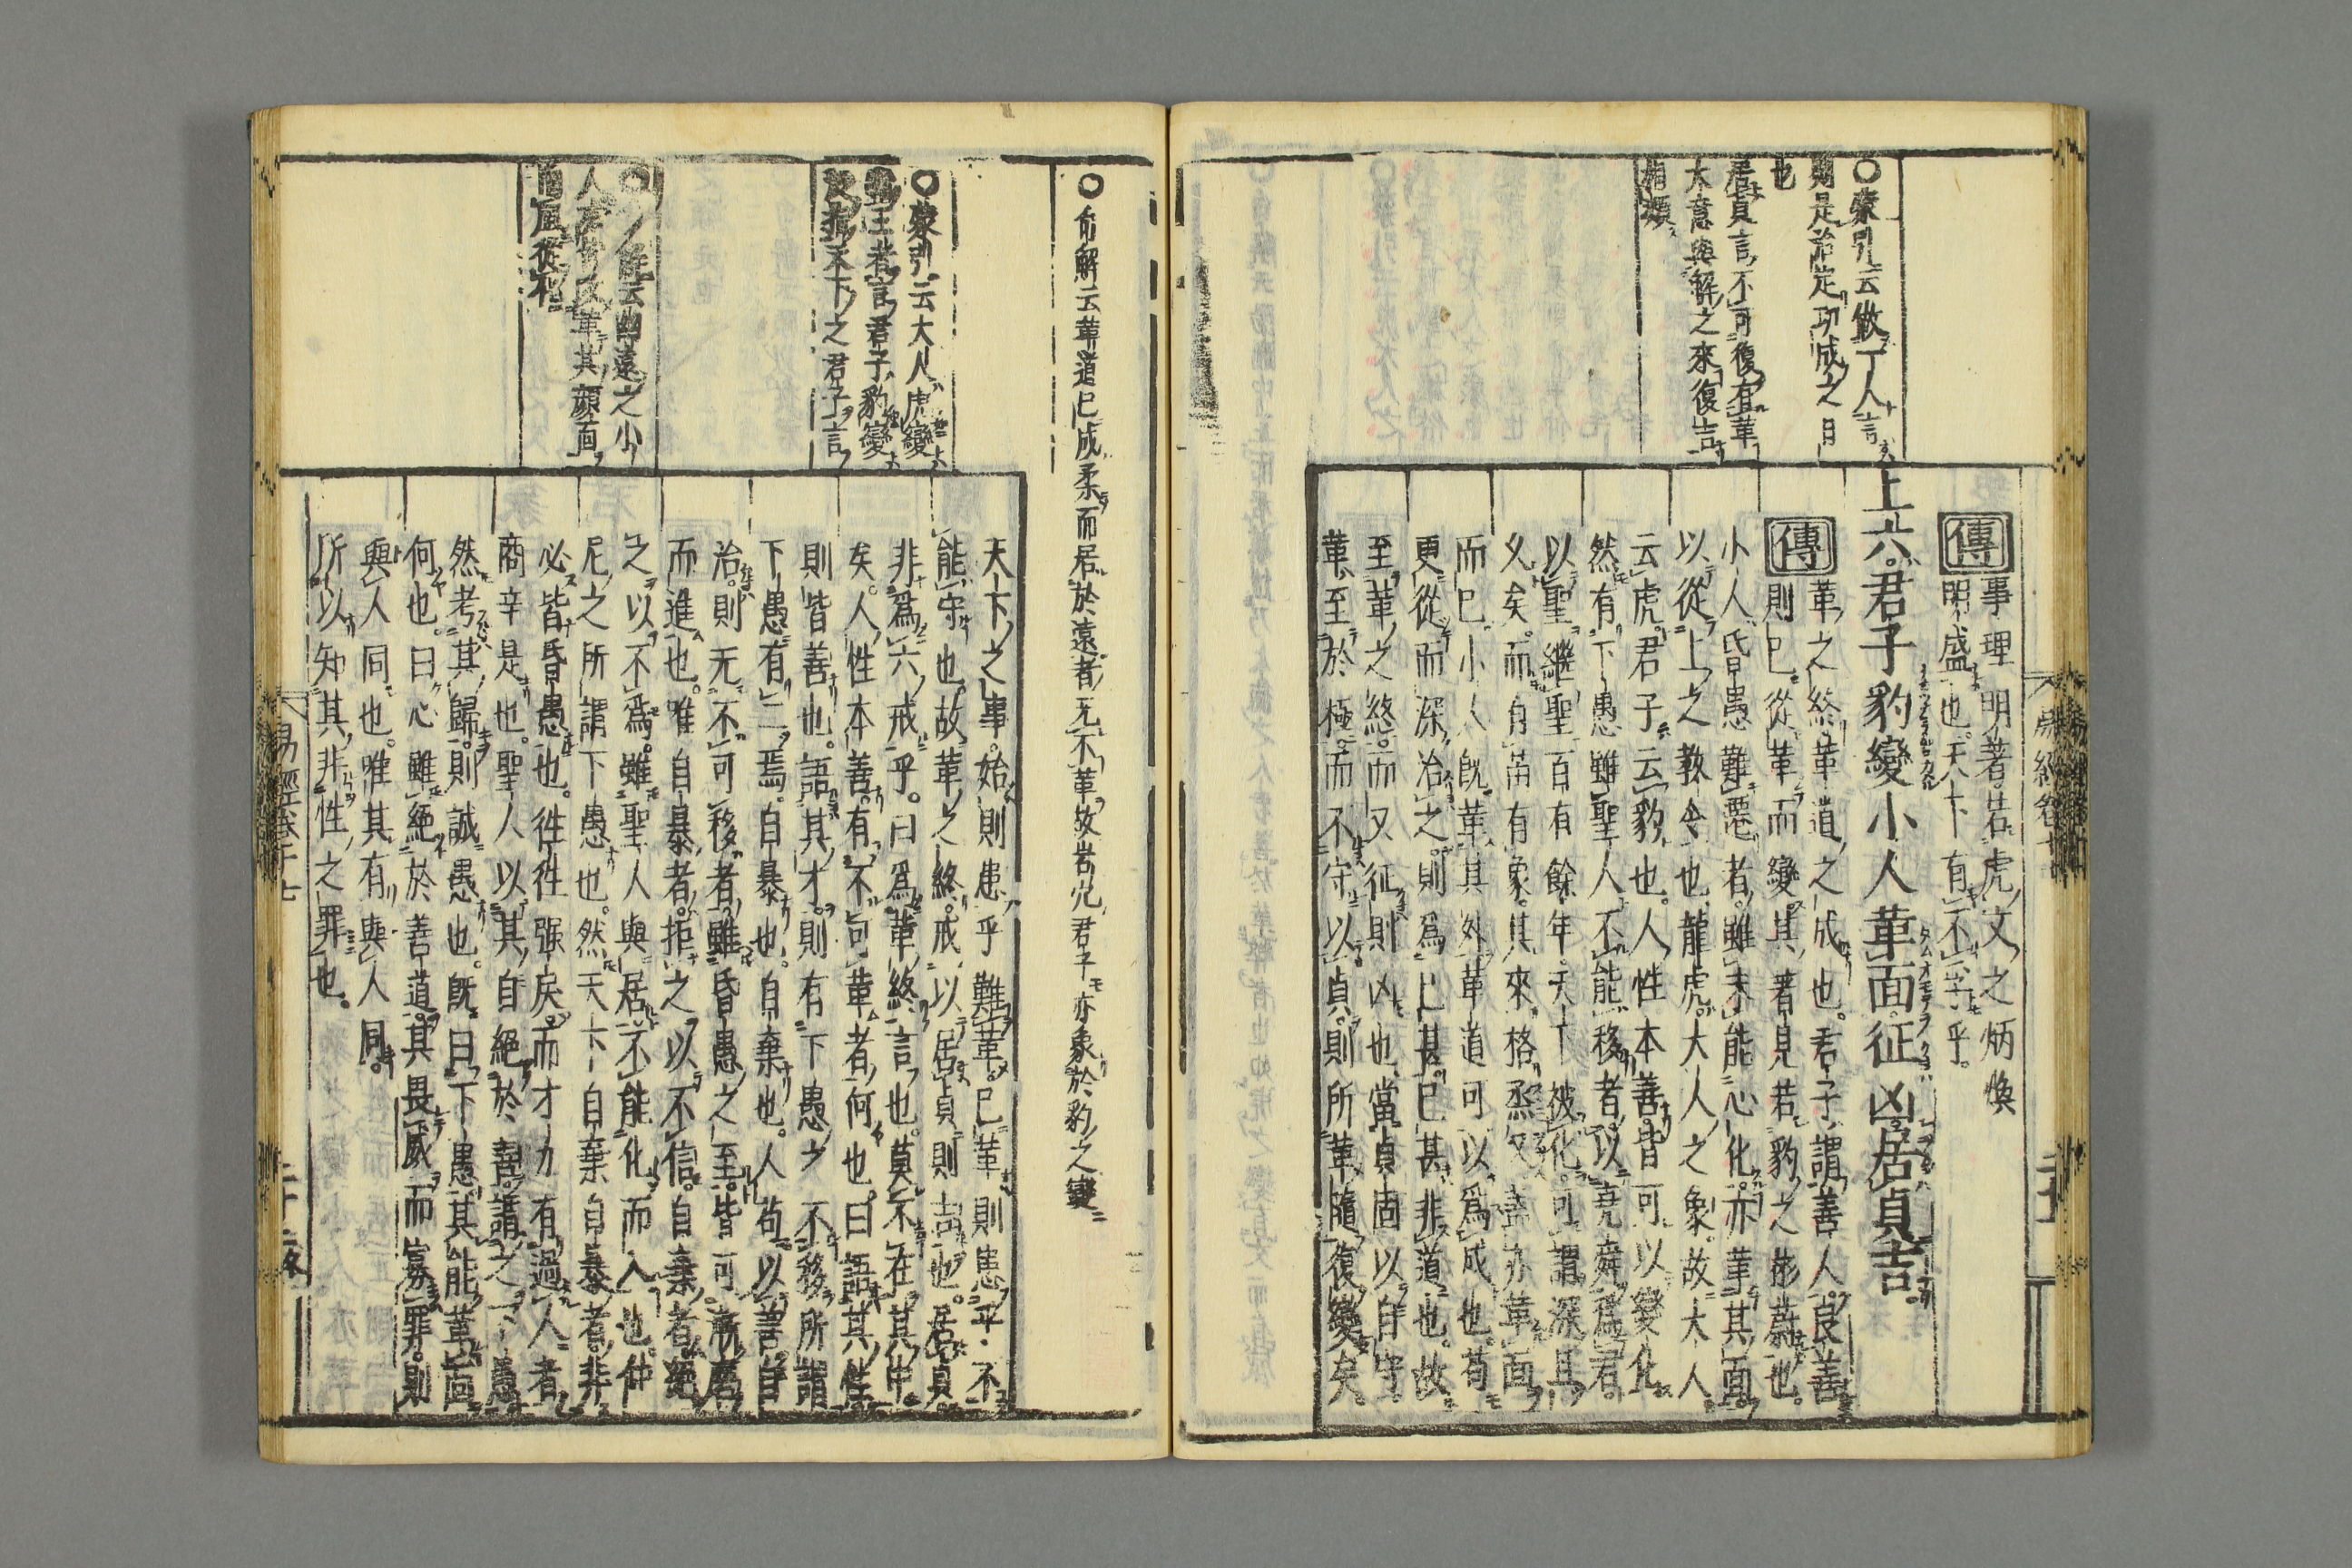 ○蒙引云散丁人言
則是治定功成之日
也
居貞言不可復有革
大意與解之來復吉
相類
傳
事理明著若虎文之炳煥
明盛也天下有不孚乎
上六君子豹變小人革面征凶居貞吉
傳
革之終革道之成也君子謂善人良善
則已從革而變其著見若豹之彬蔚也
小人昏愚難遷者雖未能心化亦革其面
以從上之教令也龍虎大人之象故大人
云虎君子云豹也人性本善皆可以變化
然有下愚雖聖人不能移者以堯舜爲君
以聖繼聖百有餘年天下被化可謂深且
久矣而有苗有象其來格烝乂蓋亦革面
而已小人旣革其外革道可以爲成也苟
更從而深治之則爲已甚已甚非道也故
至革之終而又征則凶也當貞固以自守
革至於極而不守以貞則所革隨復變矣
○ 解云革道已成柔而居於遠者无不革故若凡君子亦象於豹之變
○蒙引云大人虎變
王者言君子豹變
天下之君子言
○ 解云幽遠之小
人 革其顔面
天下之事始則患乎難革已革則患乎不
能守也故革之終戒以居貞則吉也居貞
非爲六戒乎曰爲革終言也莫不在其中
矣人性本善有不可革者何也曰語其性
則皆善也語其才則有下愚之不移所謂
下愚有二焉自暴也自棄也人苟以善自
治則无不可移者雖昏愚之至皆可漸磨
而進也唯自暴者拒之以不信自棄者絕
之以不爲雖聖人與居不能化而入也仲
尼之所謂下愚也然天下自棄自暴者非
必皆昏愚也徃徃强戾而才力有過人者
商辛是也聖人以其自絕於善謂之下愚
然考其歸則誠愚也旣曰下愚其能革面
何也曰心雖絕於善道其畏威而寡罪則
與人同也唯其有與人同
所以知其非性之罪也
易經卷十七